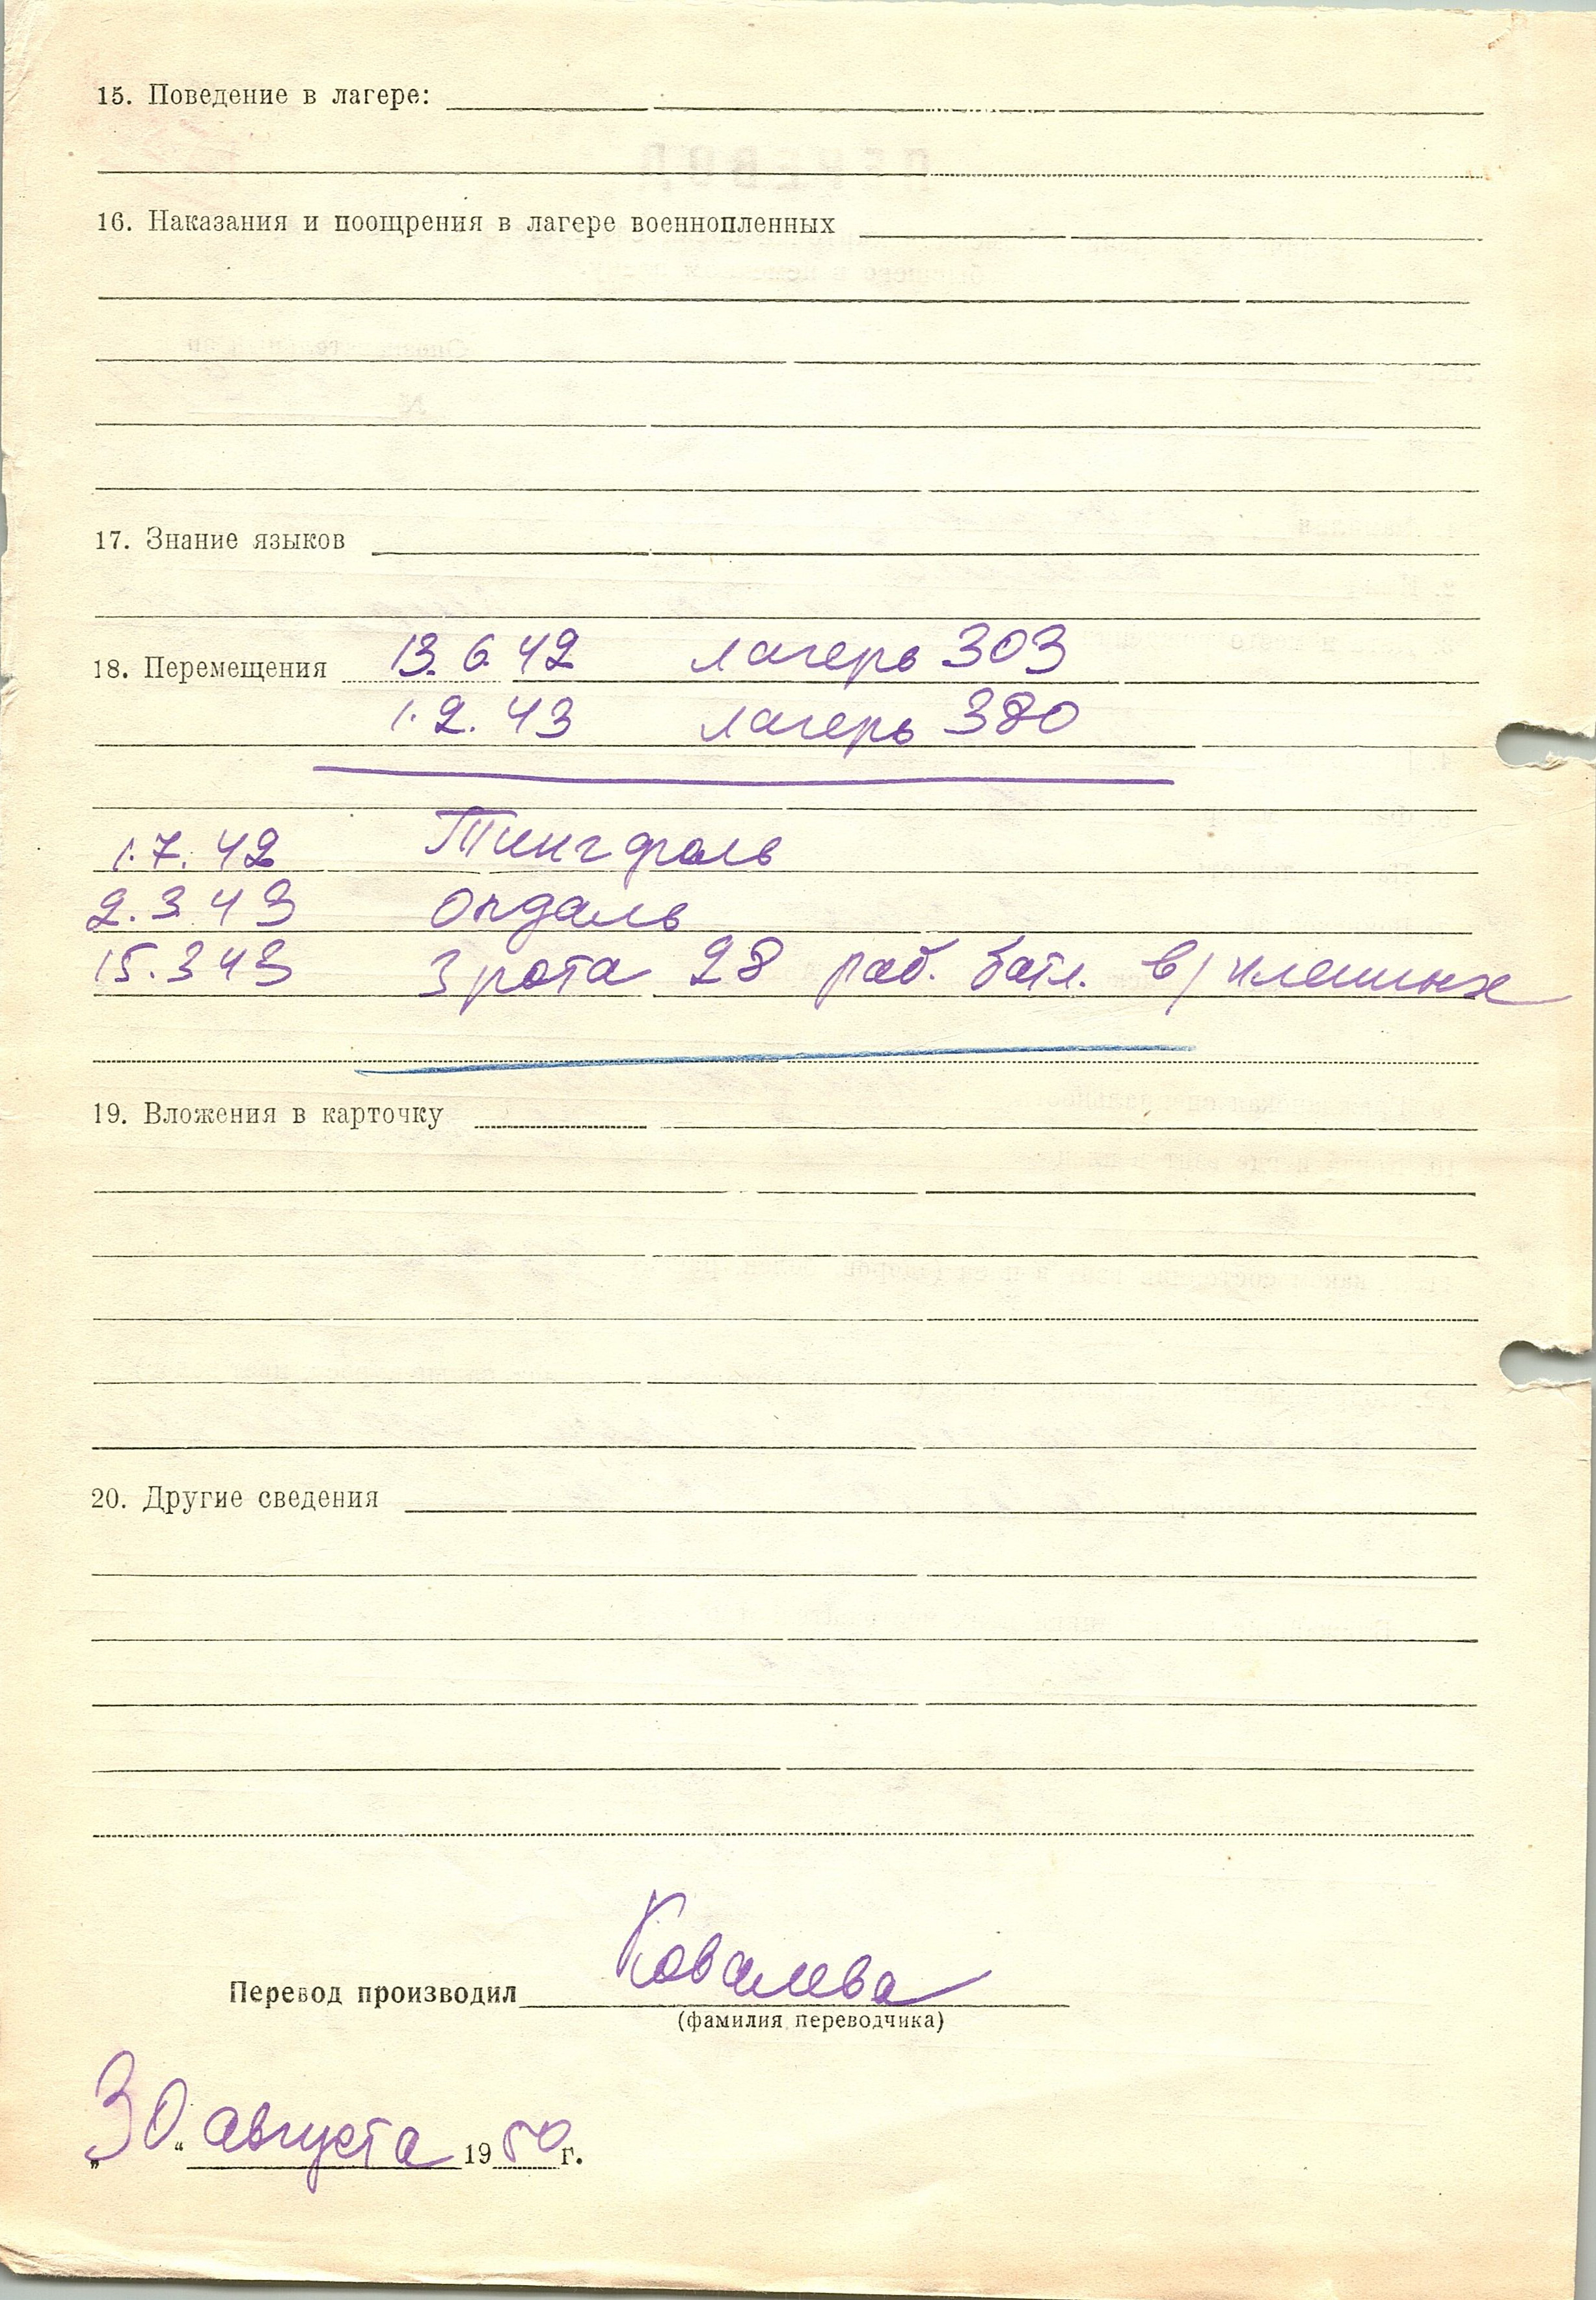 15. Поведение в лагере:
16. Наказания и поощрения в лагере военнопленных
17. Знание языков
18. Перемещения 13.6.42 лагерь 303
1.2.43 лагерь 380
1.7.42 Тингфоль
2.3.43 Опдаль
15.3.43 3 рота 28 раб. батл. в/пленных
19. Вложения в карточку
20. Другие сведения
Перевод производил Ковалева
(фамилия переводчика)
„30“ августа 1950 г.